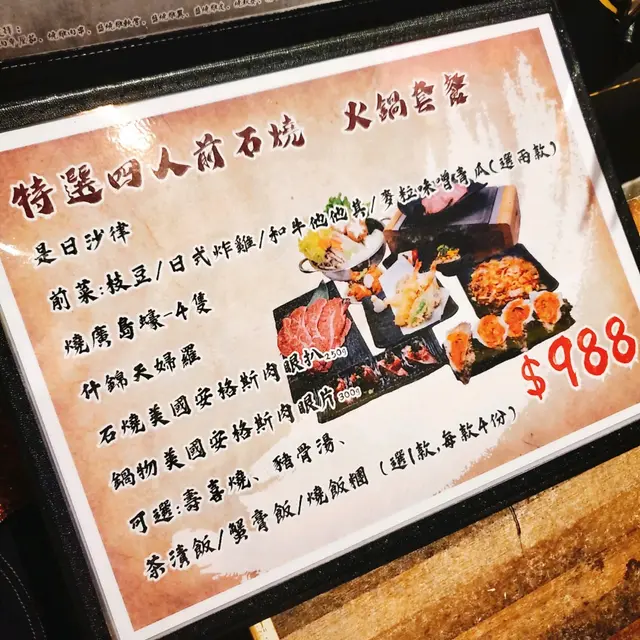 特選四人前石燒 火鍋套餐
是日沙律
前菜:枝豆/日式炸雞/和牛他他其/麥粒味噌青瓜(選兩款)
燒廣島蠔-4隻
什錦天婦羅
石燒美國安格斯肉眼扒250g
鍋物美國安格斯肉眼片300g
可選:壽喜燒、豬骨湯、
茶漬飯/蟹膏飯/燒飯糰 (選1款,每款4份)
$988